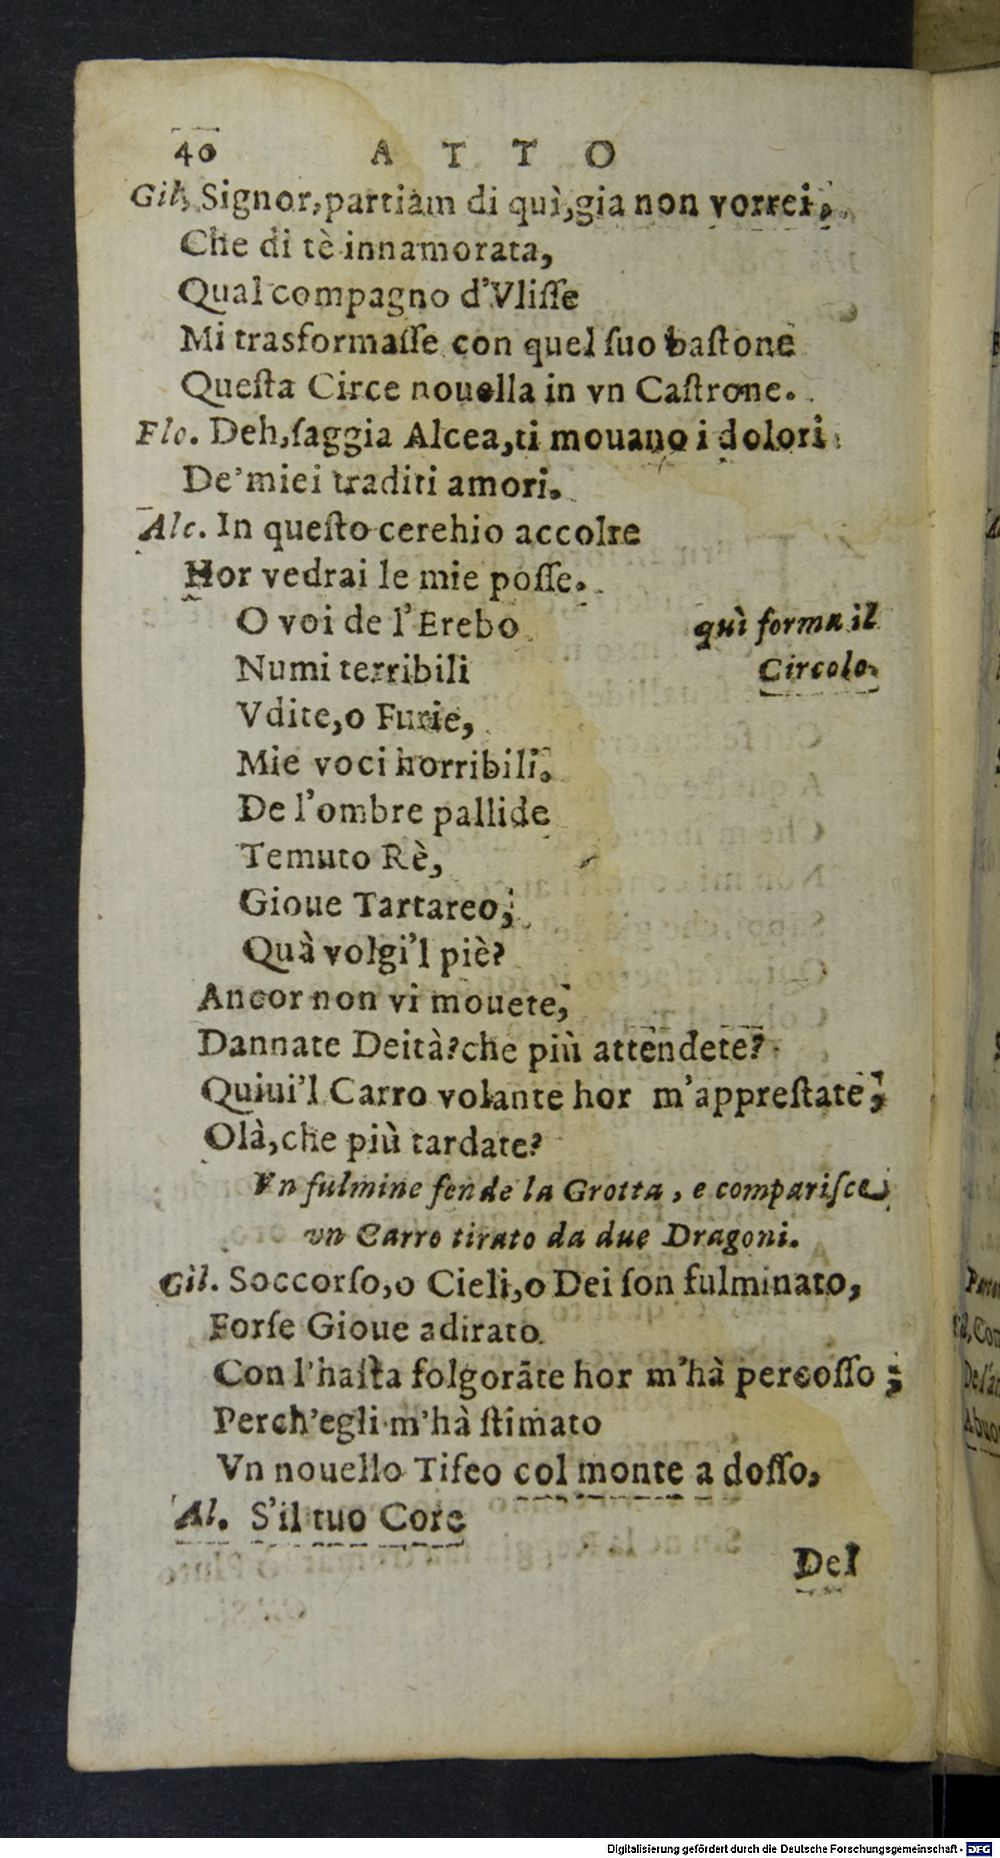 40 ATTO
Gil. Signor, partiam di quì, gia non vorrei,
Che di tè innamorata,
Qual compagno d'Vliſſe
Mi trasformaſſe con quel ſuo baſtone
Queſta Circe nouella in vn Caſtrone.
Flo. Deh, ſaggia Alcea, ti mouano i dolori
De' miei traditi amori.
Alc. In queſto cerehio accolte
Hor vedrai le mie poſſe.
O voi de l'Erebo quì forma il
Numi terribili Circolo.
Vdite, o Furie,
Mie voci horribili.
De l'ombre pallide
Temuto Rè,
Gioue Tartareo,
Quà volgi'l piè?
Ancor non vi mouete,
Dannate Deità? che più attendete?
Quiui'l Carro volante hor m'appreſtate;
Olà, che più tardate?
Vn fulmine fende la Grotta, e compariſce
vn Carro tirato da due Dragoni.
Gil. Soccorſo, o Cieli, o Dei ſon fulminato,
Forſe Gioue adirato
Con l'haſta folgorāte hor m'hà percoſſo;
Perch'egli m'hà ſtimato
Vn nouello Tifeo col monte a doſſo,
Al. S'il tuo Core
Del
Parto
Con
Abuo
Digitalisierung gefördert durch die Deutsche Forschungsgemeinschaft - DFG